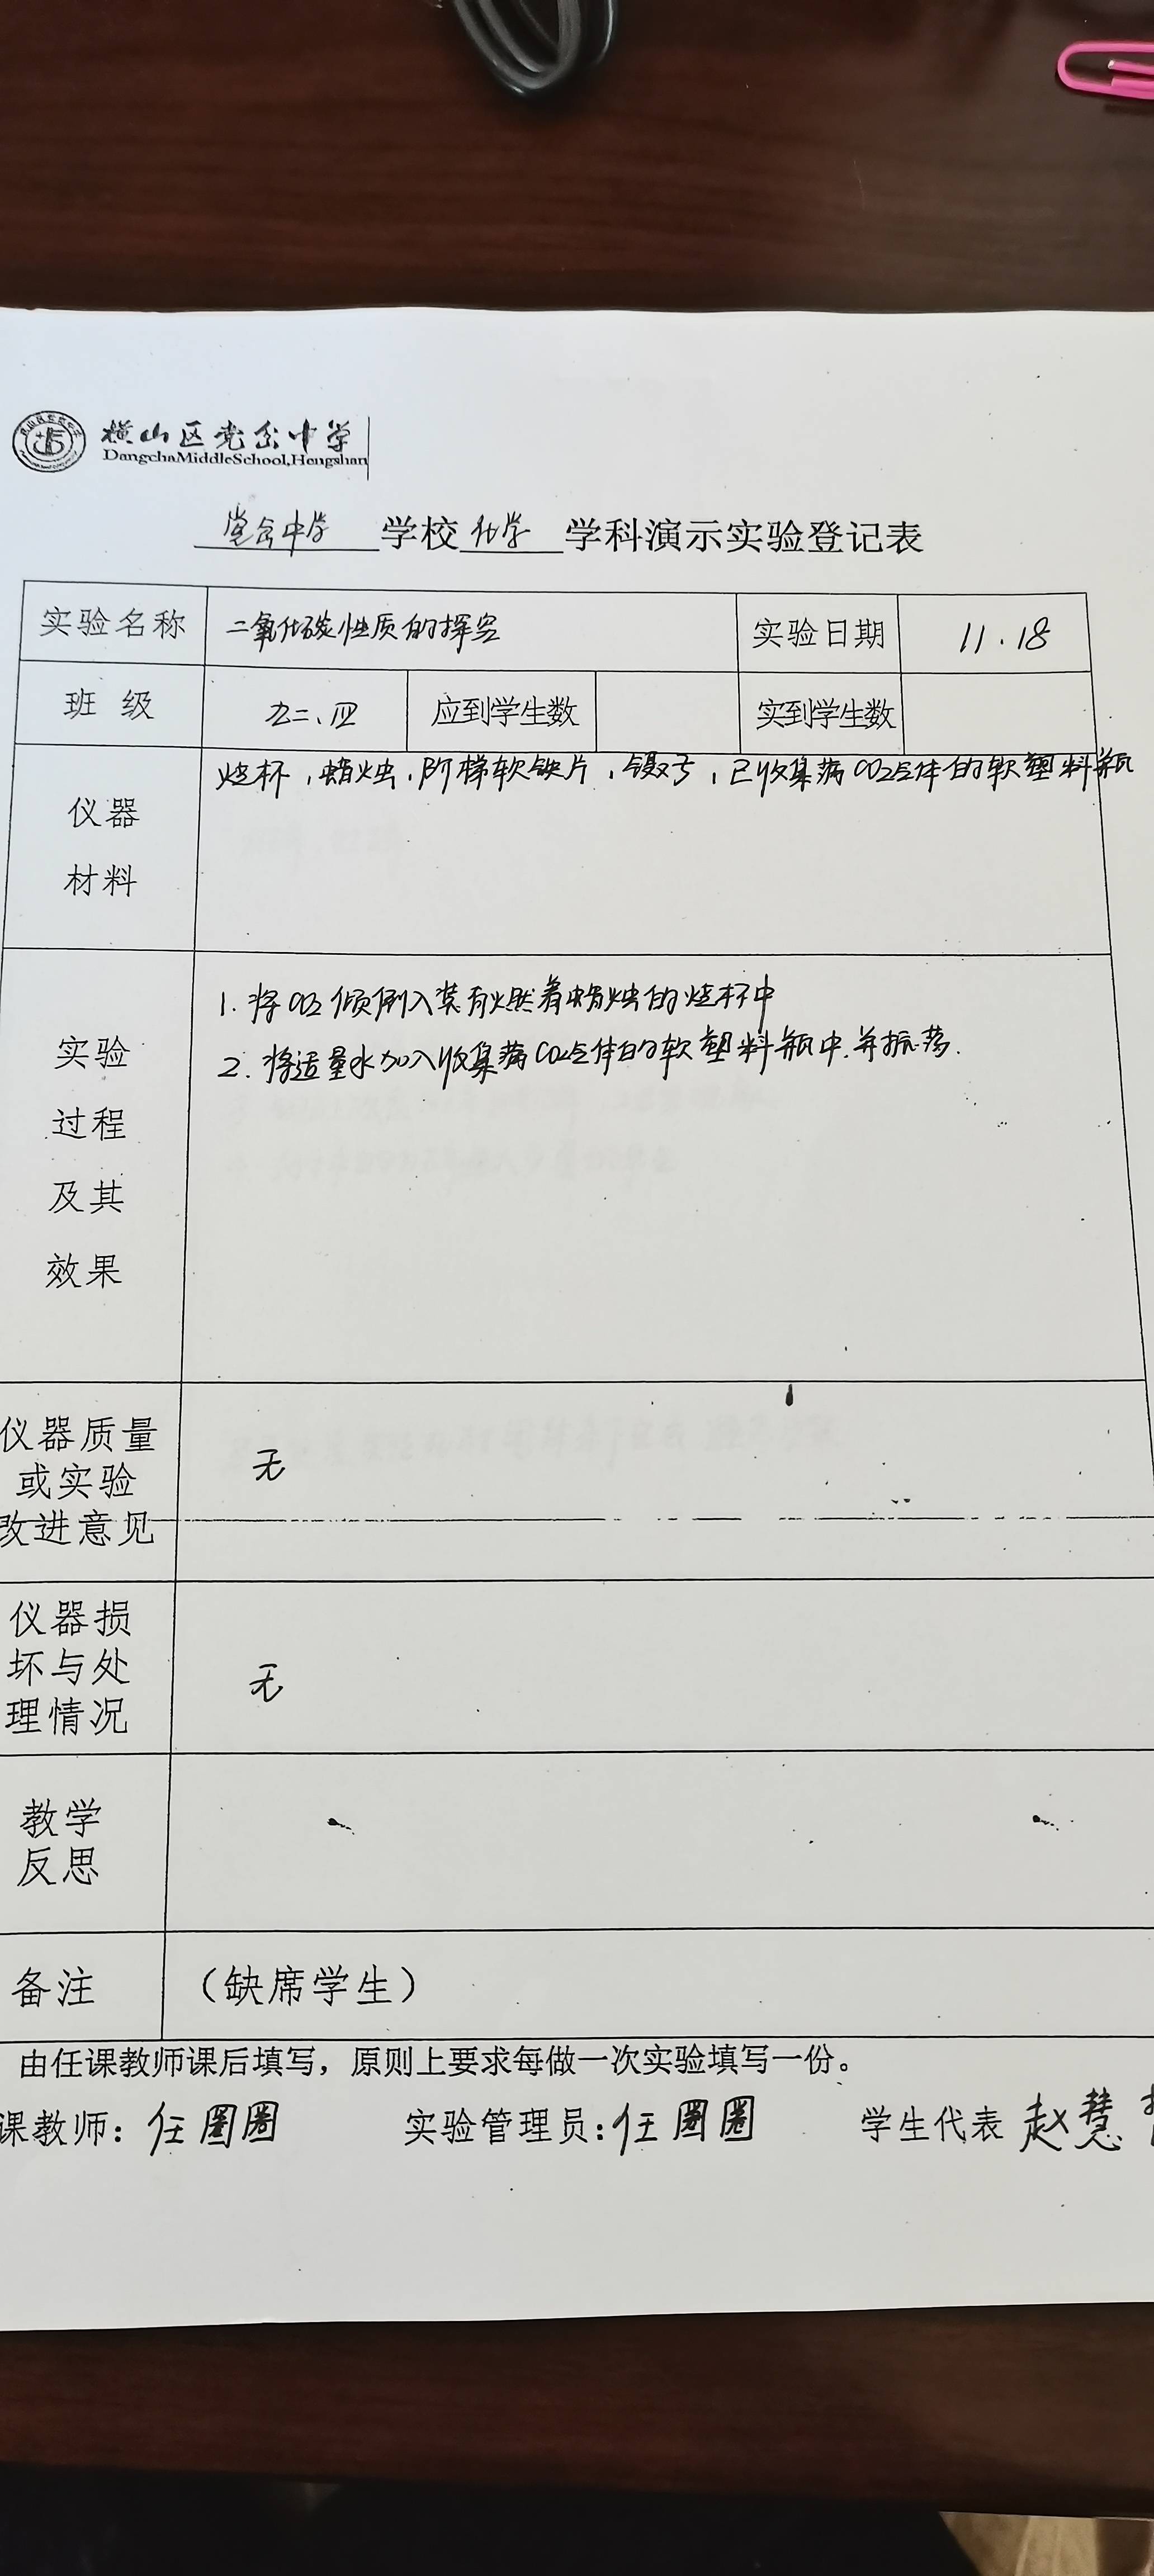 横山区党岔中学
DangchaMiddleSchool,Hengshan
党岔中学 学校 化学 学科演示实验登记表
实验名称 二氧化碳性质的探究 实验日期 11.18
班 级 九二、四 应到学生数 实到学生数
仪器 烧杯,蜡烛,阶梯软铁片,镊子,已收集满CO2气体的软塑料瓶
材料
1. 将CO2倾倒入装有燃着蜡烛的烧杯中
2. 将适量水加入收集满CO2气体的软塑料瓶中.并振荡.
实验
过程
及其
效果
仪器质量
或实验 无
改进意见
仪器损
坏与处 无
理情况
教学
反思
备注 (缺席学生)
由任课教师课后填写,原则上要求每做一次实验填写一份。
课教师: 任圈圈 实验管理员: 任圈圈 学生代表 赵慧